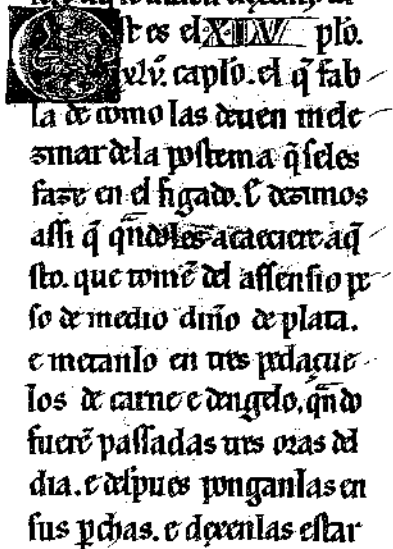 Este es el XLIV plō.
xlv. caplō. el q̃ fab
la de como las deuen mele
zinar dela postema q̃ seles
faze en el figado. E dezimos
assi q̃ qñdo les acaeciere aq̃
sto. que tomē del assensio pe
so de medio diño de plata.
e metanlo en tres pedaçue
los de carne e dengelo. qñdo
fuerē passadas tres oras del
dia. e despues ponganlas en
sus ꝑchas. e dexenlas estar